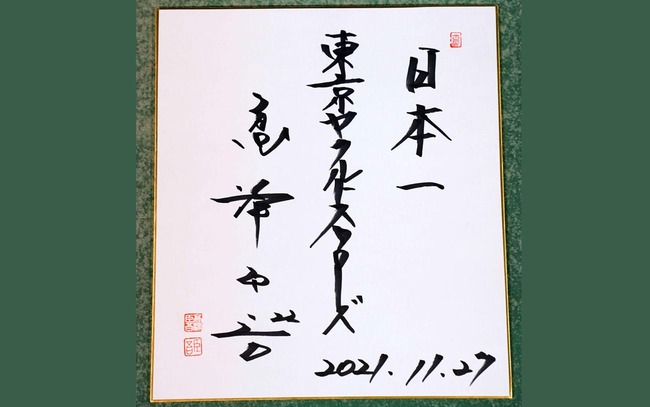 日本一
東京ヤクルトスワローズ
高津臣吾 22
2021.11.27